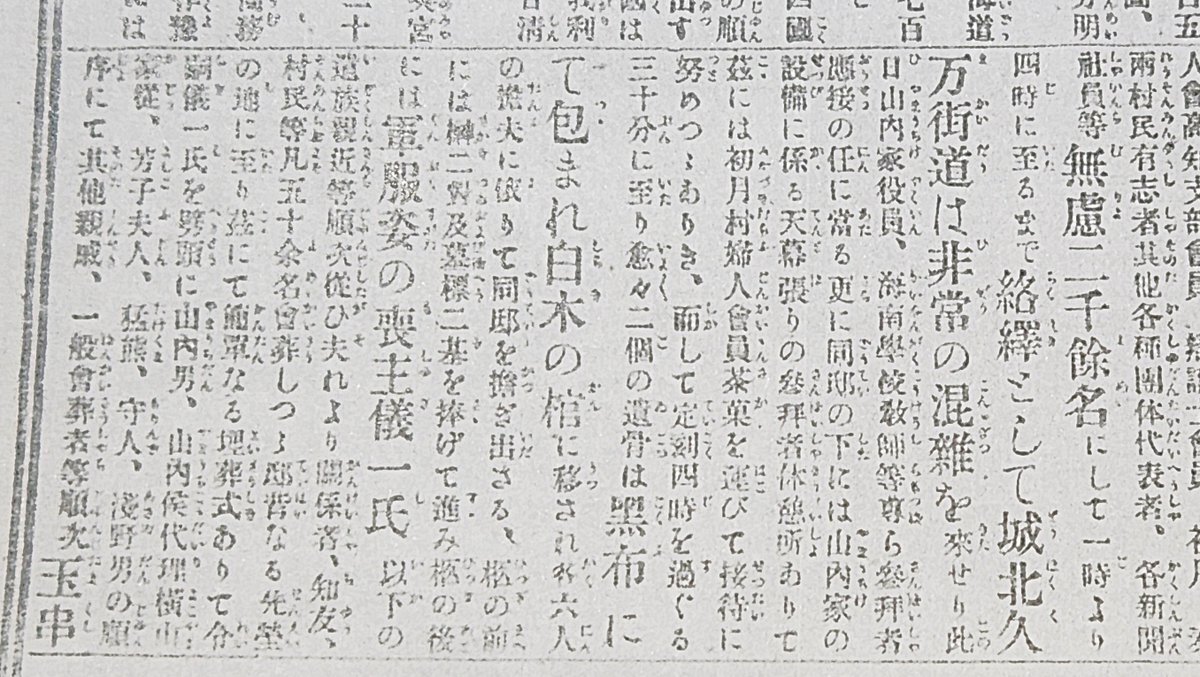 人會高知支部會員
兩村民有志者其他各種團体代表者、各新聞
社員等無慮二千餘名にして一時より
四時に至るまで絡繹として城北久
万街道は非常の混雜を來せり此
日山内家役員、海南學校敎師等專ら參拜者
應接の任に當る更に同邸の下には山内家の
設備に係る天幕張りの參拜者休憩所ありて
茲には初月村婦人會員茶菓を運びて接待に
努めつゝありき、而して定刻四時を過ぐる
三十分に至り愈々二個の遺骨は黑布に
て包まれ白木の棺に移され各六人
の擔夫に依りて同邸を擔ぎ出さる、柩の前
には榊二對及墓標二基を捧げて進み柩の後
には軍服姿の喪主儀一氏以下の
遺族親近等順次從ひ夫れより關係者、知友、
村民等凡五十余名會葬しつゝ邸なる先塋
の地に至り茲にて簡單なる埋葬式ありて令
嗣儀一氏を劈頭に山内男、山内侯代理横山
家從、芳子夫人、猛熊、守人、淺野男の順
序にて其他親戚、一般會葬者等順次玉串